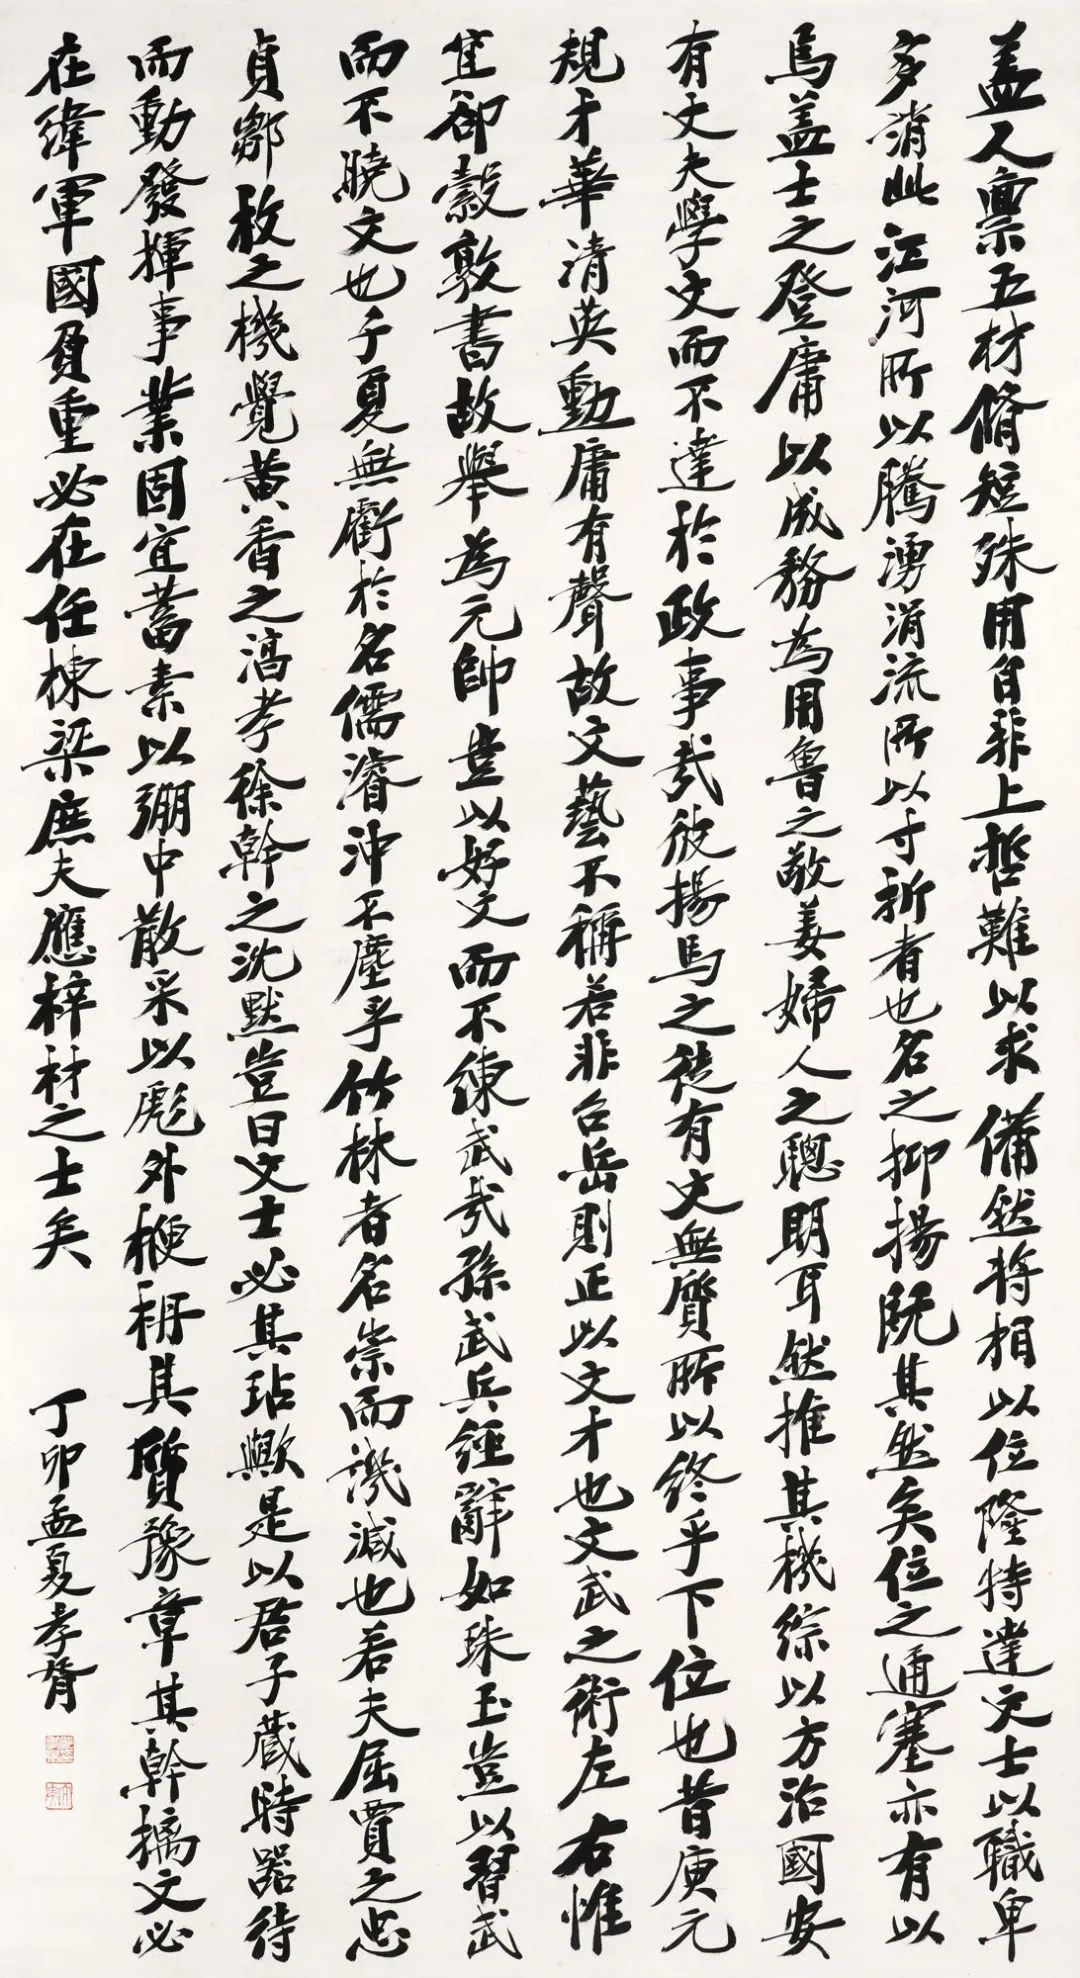 蓋人稟五材脩短殊用自非上哲難以求備然將相以位隆特達文士以職卑
多消此江河所以騰湧涓流所以寸析者也名之抑揚既其然矣位之通塞亦有以
焉蓋士之登庸以成務為用魯之敬姜婦人之聰明耳然推其機綜以方治國安
有丈夫學文而不達於政事哉彼揚馬之徒有文無質所以終乎下位也昔庾元
規才華清英勳庸有聲故文藝不稱若非台岳則正以文才也文武之術左右惟
宜郤縠敦書故舉為元帥豈以好文而不練武哉孫武兵經辭如珠玉豈以習武
而不曉文也子夏無虧於名儒濬沖不塵乎竹林者名崇而譏減也若夫屈賈之忠
貞鄒枚之機覺黃香之淳孝徐幹之沈默豈曰文士必其玷歟是以君子藏時器待
而動發揮事業固宜蓄素以弸中散采以彪外楩柟其質豫章其幹摛文必
在緯軍國負重必在任棟梁庶夫應梓材之士矣
丁卯孟夏孝胥